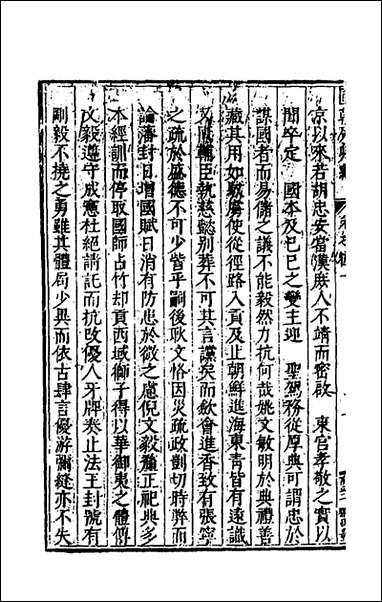 京以來若胡忠安當漢庶人不靖而密啟 東宮孝敬之實以
間卒定 國本及己巳之變主迎 聖駕務從厚典可謂忠於
謀國者而易儲之議不能毅然力抗何哉姚文敏明於典禮善
藏其用如敕虜使從徑路入貢及止朝鮮進海東青皆有遠識
又輔臣執慈懿別葬不可其言讜矣而飲會進香致有張寧
之疏於盛德不可少訾乎嗣後耿文恪因災疏政劃切時弊而
論藩封日增國賦日消有防患於微之慮倪文毅釐正祀典多
本經訓而停取國師占竹却貢西域獅子得以華御夷之體傅
文毅遵守成憲杜絕請託而抗改優人牙牌奏止法王封號有
剛毅不撓之勇雖其體局少異而依古肆言優游彌縫亦不失